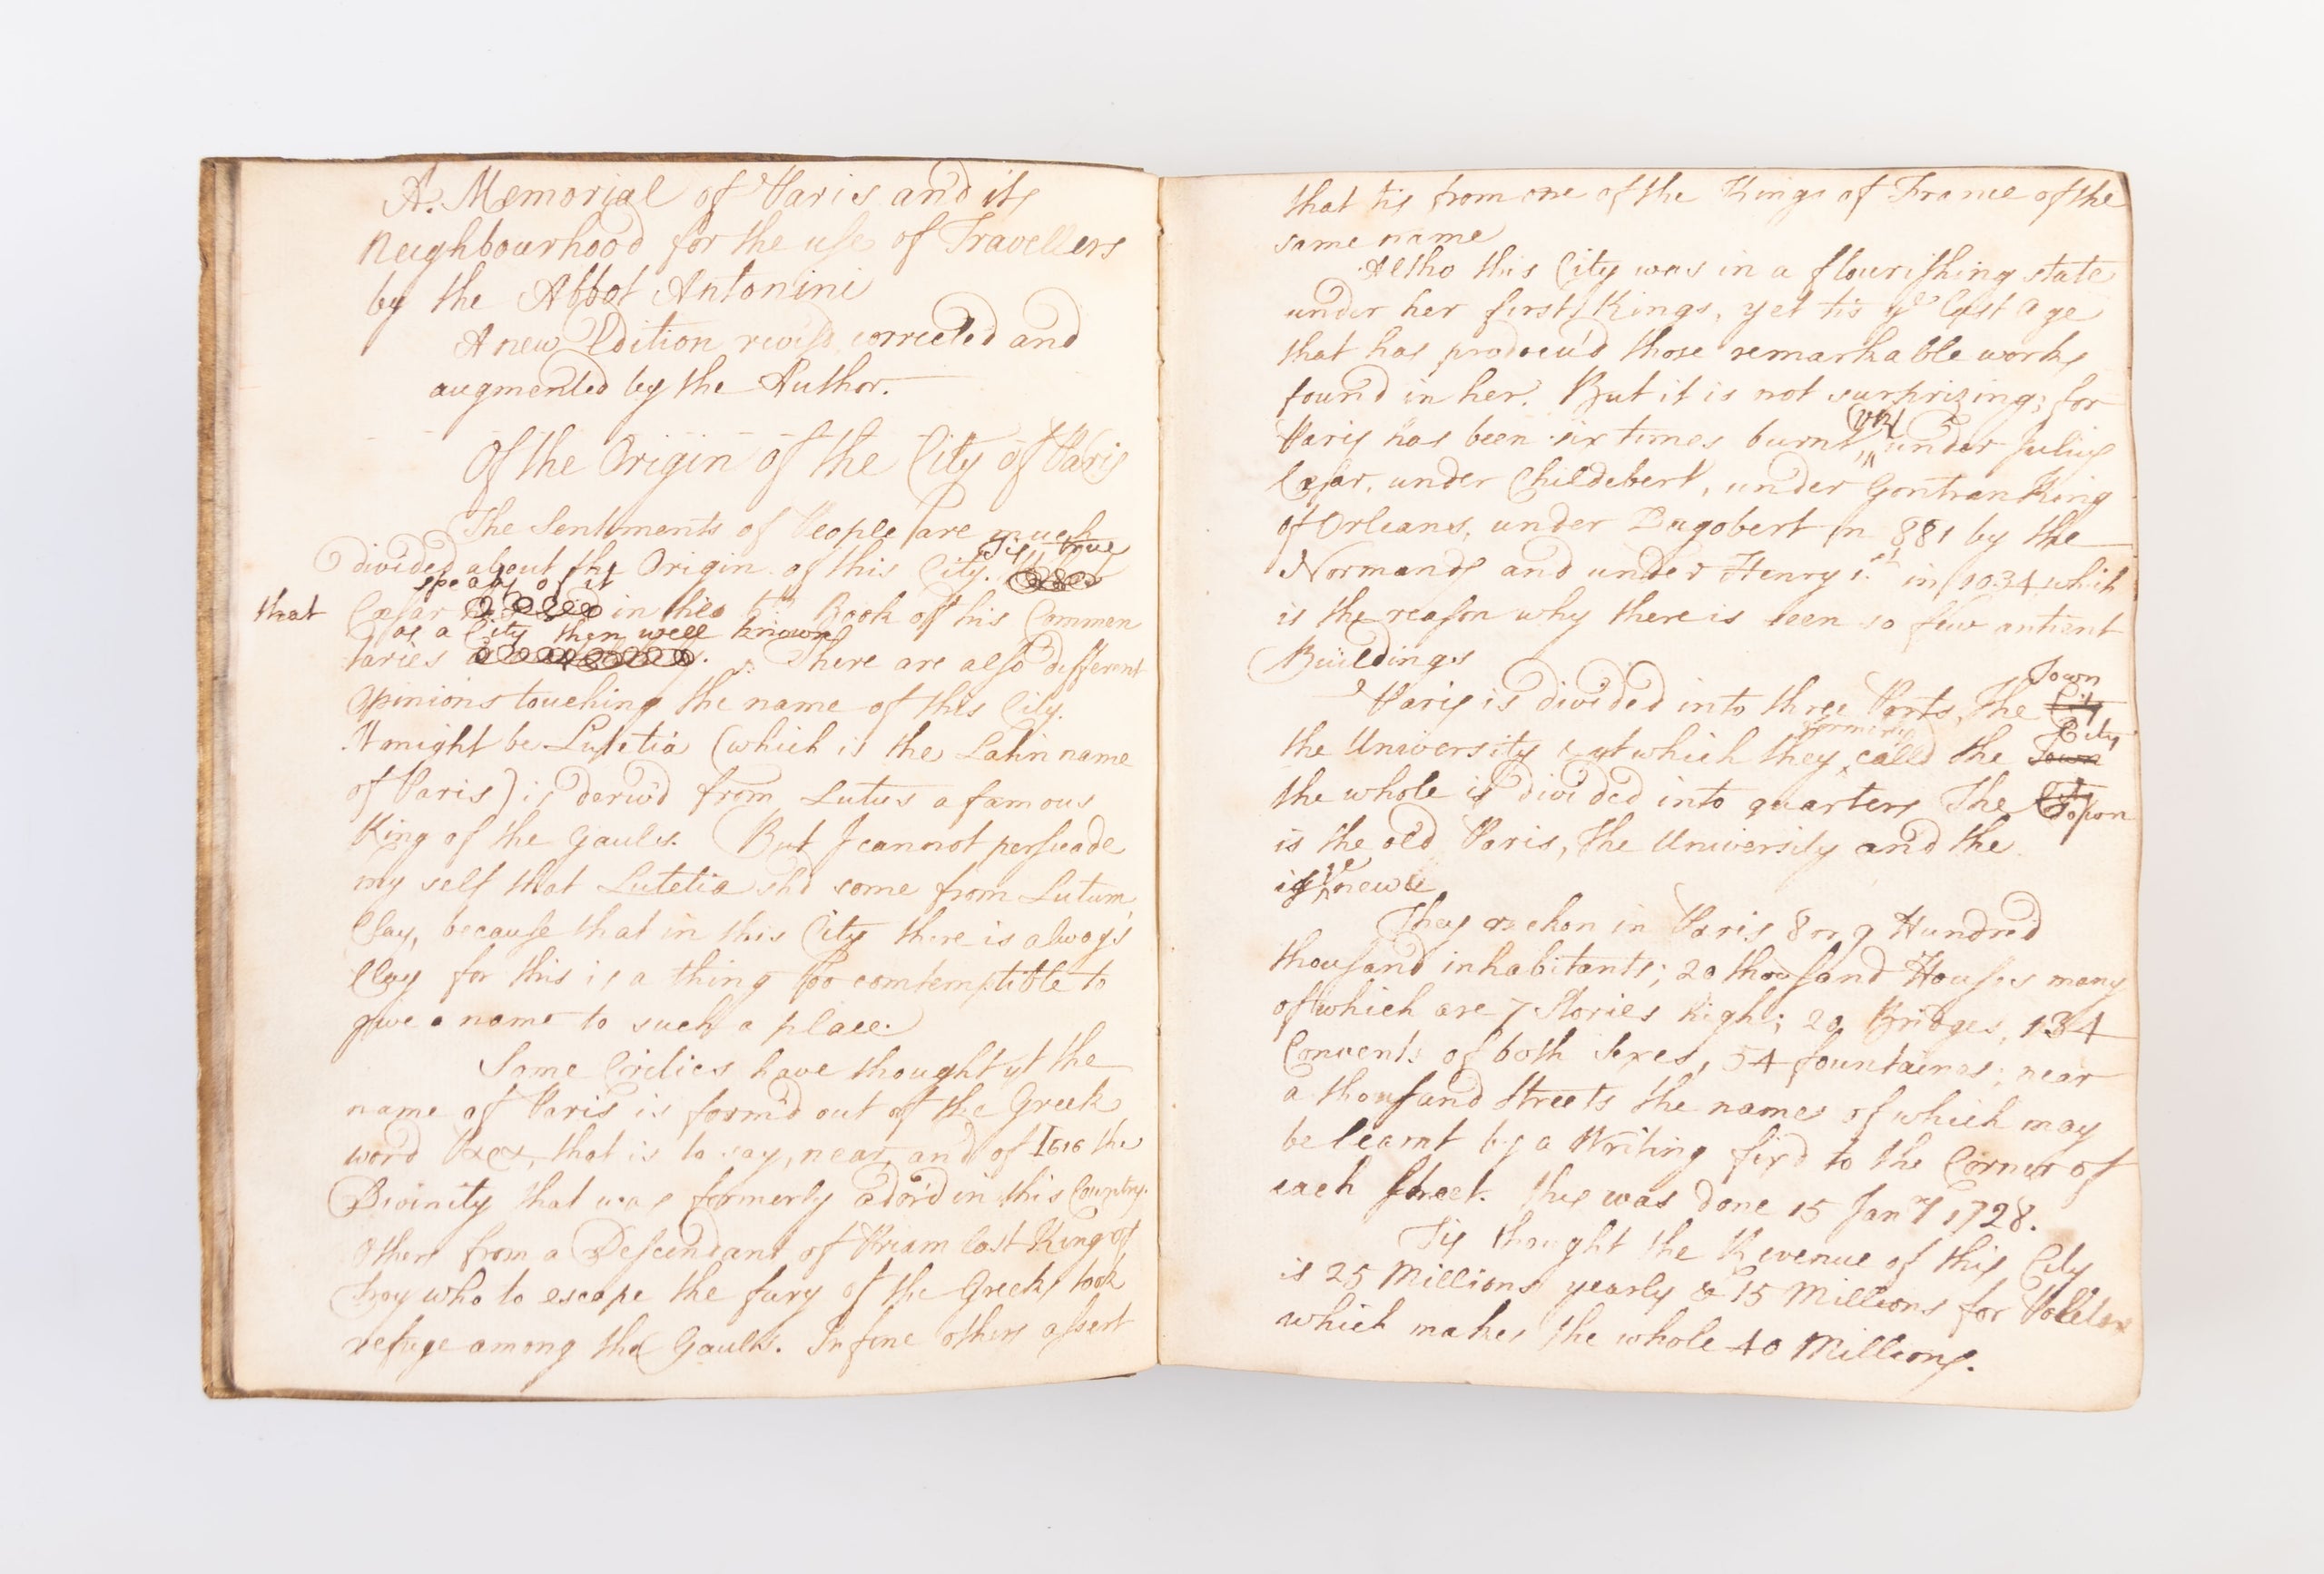 A Memorial of Paris and its
Neighbourhood for the use of Travellers
by the Abbot Antonini
A new Edition revis'd corrected and
augmented by the Author.
Of the Origin of the City of Paris
The Sentiments of People are much
divided about the Origin of this City. Tis true
that Cæsar speaks of it in his 6th Book of his Commen
taries as a City then well known. There are also different
Opinions touching the name of this City.
It might be Lutetia (which is the Latin name
of Paris) is deriv'd from Lutus a famous
King of the Gaules. But I cannot persuade
my self that Lutetia shd come from Lutum
Clay, because that in this City there is always
Clay for this is a thing too comtemptible to
give a name to such a place.
Some Criticks have thought yt the
name of Paris is form'd out of the Greek
word that is to say, near, and of the
Divinity that was formerly ador'd in this Country.
Others from a Descendant of Priam last King of
Troy who to escape the fury of the Greeks took
refuge among the Gauls. In fine others assert
that tis from one of the Kings of France of the
same name
Altho this City was in a flourishing state
under her first Kings, yet tis ye last Age
that has produc'd those remarkable works
found in her. But it is not surprizing; for
Paris has been six times burnt, (viz) under Julius
Cæsar, under Childebert, under Gontran King
of Orleans, under Dagobert in 881 by the
Normands and under Henry 1.st in 1034 which
is the reason why there is seen so few antient
Buildings
Paris is divided into three Parts, The City Town
the University & yt which they formerly call'd the Town City
the whole is divided into quarters The City Town
is the old Paris, The University and the
is ye new
They reckon in Paris 8 or 9 Hundred
thousand inhabitants; 20 thousand Houses many
of which are 7 Stories high; 20 Bridges, 134
Convents of both Sexes, 54 fountaines; near
a thousand Streets the names of which may
be learnt by a Writing fix'd to the Corner of
each Street. this was done 15 Janry 1728.
Tis thought the Revenue of this City
is 25 Millions yearly & 15 Millions for
which makes the whole 40 Millions.